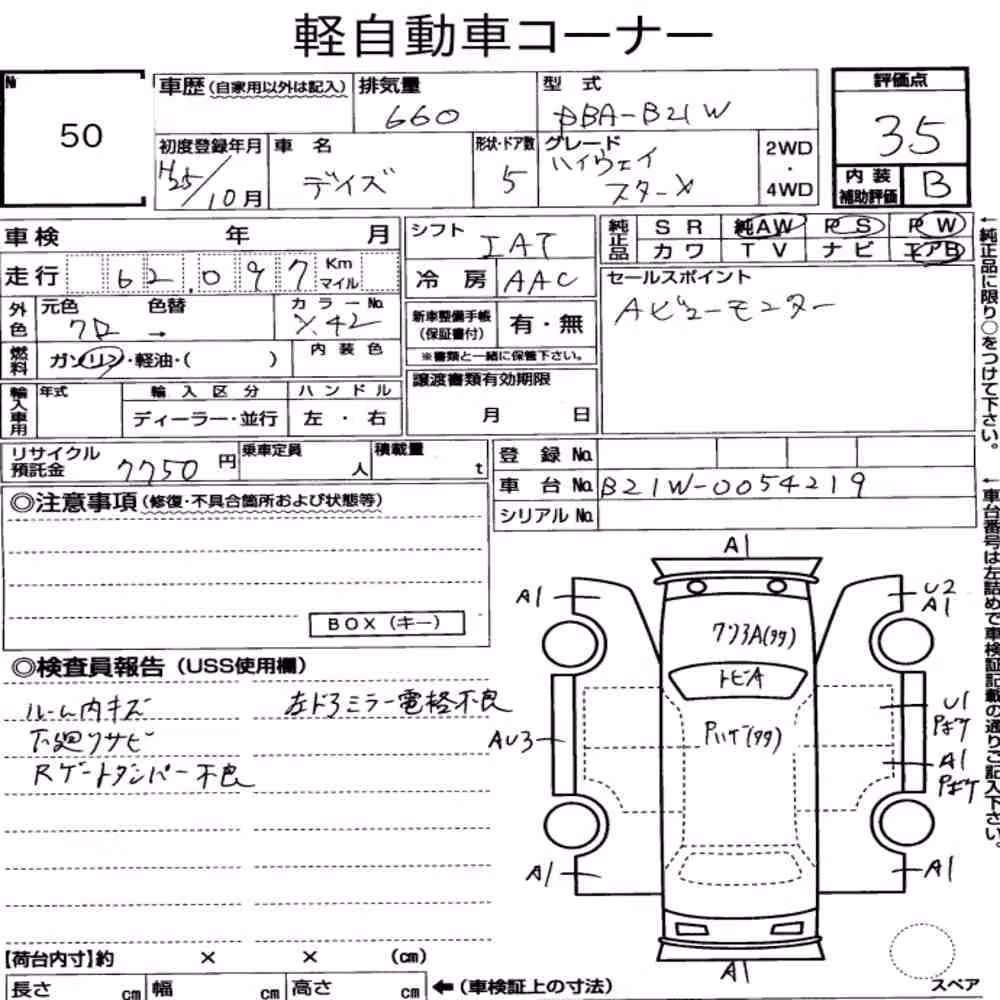 軽自動車コーナー
№ 50
車歴(自家用以外は記入) 排気量 660 型式 DBA-B21W 評価点 35
初度登録年月 H25/10月 車名 デイズ 形状・ドア数 5 グレード ハイウェイスターX 2WD・4WD 内装補助評価 B
車検 年 月
走行 62,097 Km マイル
外色 元色 クロ 色替 → カラーNo. X42
燃料 ガソリン・軽油・( ) 内装色
輸入車用 年式 輸入区分 ディーラー・並行 ハンドル 左・右
シフト IAT
冷房 AAC
新車整備手帳(保証書付) 有・無
※書類と一緒に保管下さい。
譲渡書類有効期限
月 日
純正品 SR 純AW PS PW
カワ TV ナビ エアB
セールスポイント
Aビューモニター
←純正品に限り○をつけて下さい。
リサイクル預託金 7750円 乗車定員 人 積載量 t
登録No.
車台No. B21W-0054219
シリアルNo.
←車台番号は左詰めで車検証記載の通りご記入下さい。
◎注意事項(修復・不具合箇所および状態等)
BOX(キー)
◎検査員報告(USS使用欄)
ルーム内キズ 左ドアミラー電格不良
下廻りサビ
Rゲートダンパー不良
A1
A1 U2
A1
フツ3A(タタ)
トビA
AU3 Pハゲ(タタ) U1
Pボケ
A1
Pボケ
A1 A1
A1
【荷台内寸】約 × × (cm)
長さ cm 幅 cm 高さ cm ←(車検証上の寸法)
スペア